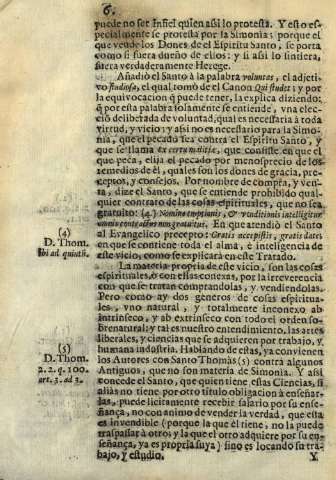 6.
puede no ser Infiel quien asi lo protesta. Y esto es-
pecialmente se protesta por la Simonia; porque el
que vende los Dones de el Espiritu Santo, se porta
como si fuera dueño de ellos: y si asi lo sintiera,
fuera verdaderamente Herege.
Añadiò el Santo à la palabra voluntas, el adjeti-
vo studiosa, el qual tomò de el Canon Qui studet: y por
la equivocacion q̃ puede tener, la explica diziendo;
q̃ por esta palabra solamente se entiende, vna elec-
ciò deliberada de voluntad, qual es necessaria à toda
virtud, y vicio: y asi no es necessario para la Simo-
nia, que el pecado sea contra el Espiritu Santo, y
que se llama ex certa malitia, que consiste en que el
que peca, elija el pecado por menosprecio de los
remedios de èl, quales son los dones de gracia, pre-
ceptos, y consejos. Por nombre de compra, y ven-
ta, dize el Santo, que se entiende prohibido qual-
quier contrato de las cosas espirituales, que no sea
gratuito: (4.) Nomine emptionis, & venditionis intelligitur
omnis contractus non gratuitus. En que atendiò el Santo
al Evangelico precepto: Gratis accepistis, gratis date;
en que se contiene toda el alma, è inteligencia de
este vicio, como se explicarà en este Tratado.
(4)
D. Thom.
ibi ad quintũ.
La materia propria de este vicio, son las cosas
espirituales, ò con ellas conexas, por la irreverencia
con que se tratan comprandolas, y vendiendolas.
Pero como ay dos generos de cosas espiritua-
les, vno natural, y totalmente inconexo ab
intrinseco, y ab extrinseco con todo el orden so-
brenatural; y tal es nuestro entendimiento, las artes
liberales, y ciencias que se adquieren por trabajo, y
humana industria. Hablando de estas, ya convienen
los Autores con Santo Thomàs (5) contra algunos
Antiguos, que no son materia de Simonia. Y asi
concede el Santo, que quien tiene estas Ciencias, si
aliàs no tiene por otro titulo obligacion à enseñar-
las, puede licitamente recibir salario por su ense-
ñança, no con animo de vender la verdad, que esta
es invendible (porque la que èl tiene, no la puede
traspassar à otro, y la que el otro adquiere por su en-
señança, ya es propria suya) sino es locando su tra-
bajo, y estudio.
(5)
D. Thom.
2. 2. q. 100.
art. 3. ad 3.
Y